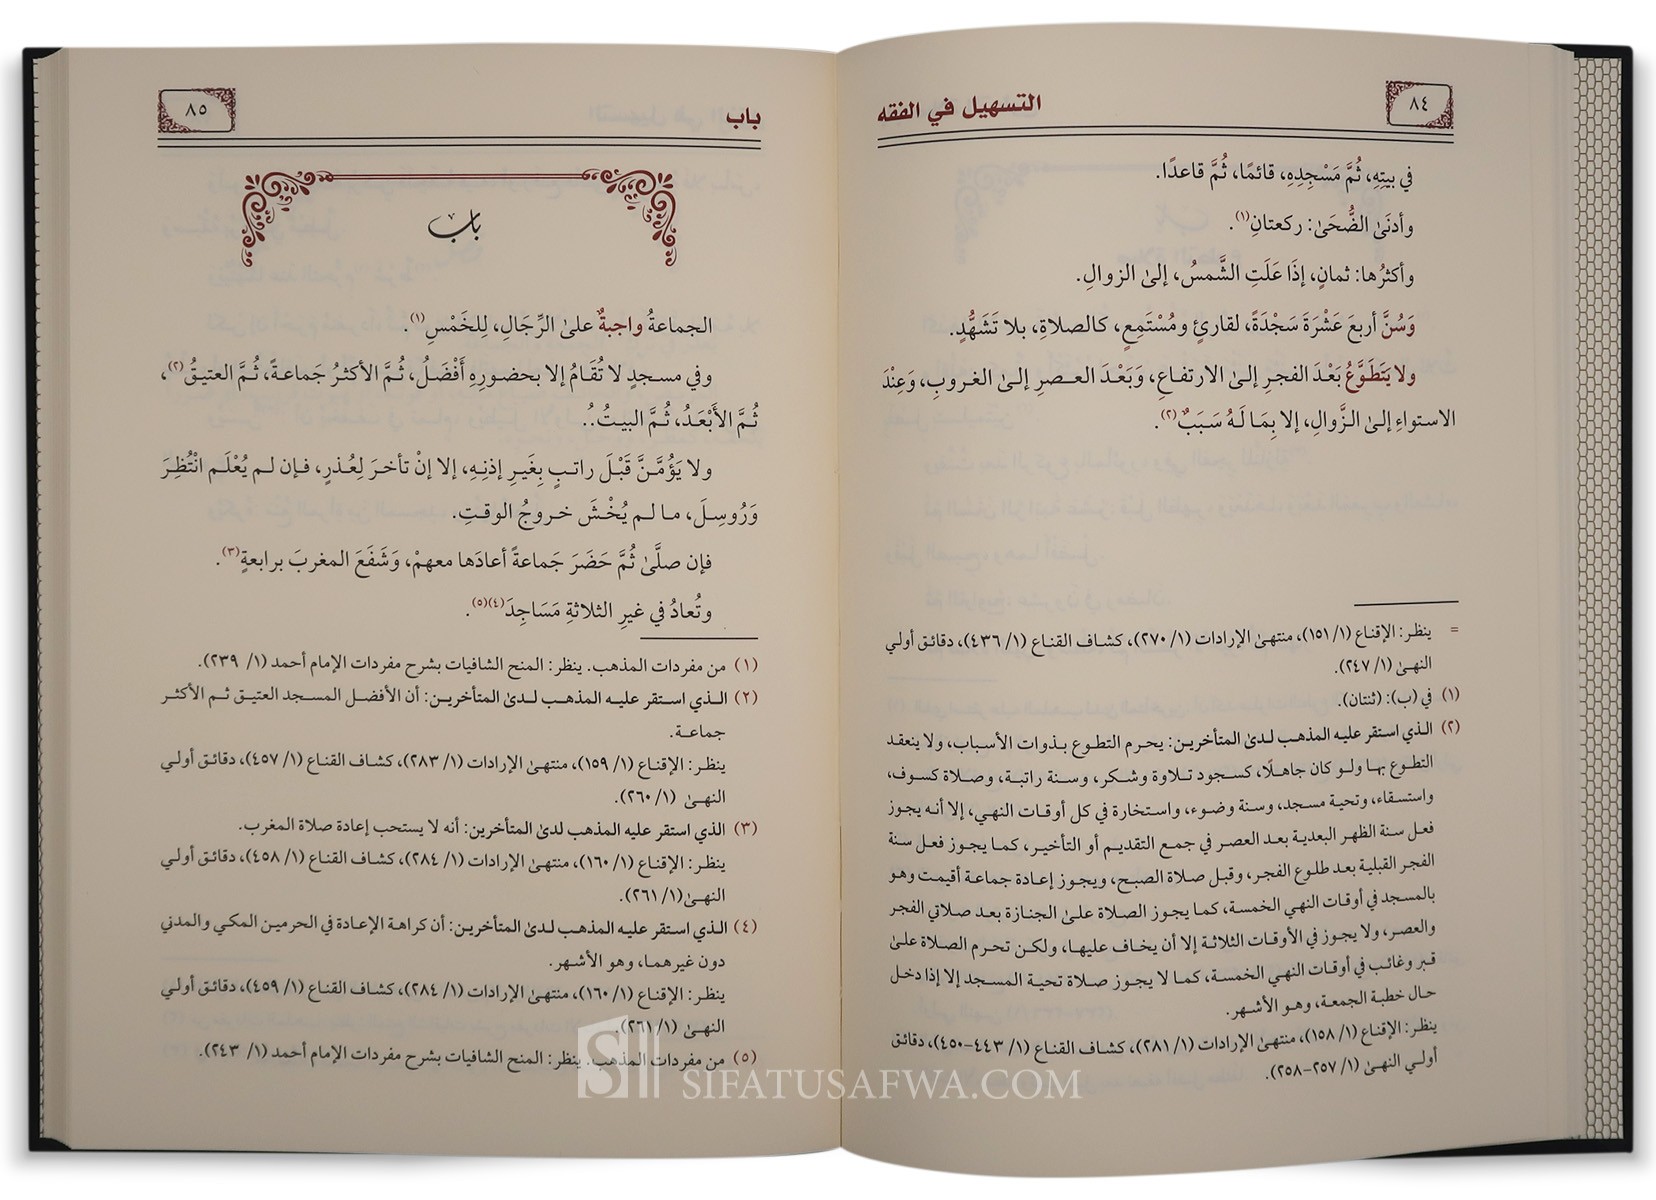 ٨٤
التسهيل في الفقه
في بيتِهِ، ثُمَّ مَسْجِدِهِ، قائمًا، ثُمَّ قاعدًا.
وأدنَى الضُّحَىٰ: ركعتانِ(١).
وأكثرُها: ثمانٍ، إذَا عَلَتِ الشَّمسُ، إلىٰ الزوالِ.
وَسُنَّ أربعَ عَشْرَةَ سَجْدَةً، لقارئٍ ومُسْتَمِعٍ، كالصلاةِ، بلا تَشَهُّدٍ.
ولا يَتَطَوَّعُ بَعْدَ الفجرِ إلىٰ الارتفاعِ، وَبَعْدَ العـصرِ إلىٰ الغروبِ، وَعِنْدَ
الاستواءِ إلىٰ الزَّوالِ، إلا بِمَا لَهُ سَبَبٌ(٢).
= ينظر: الإقناع (١/ ١٥١)، منتهىٰ الإرادات (١/ ٢٧٠)، كشاف القناع (١/ ٤٣٦)، دقائق أولي
النهىٰ (١/ ٢٤٧).
(١) في (ب): (ثنتان).
(٢) الذي استقر عليه المذهب لدىٰ المتأخرين: يحرم التطوع بذوات الأسباب، ولا ينعقد
التطوع بها ولو كان جاهلًا، كسجود تلاوة وشكر، وسنة راتبة، وصلاة كسوف،
واستسقاء، وتحية مسجد، وسنة وضوء، واستخارة في كل أوقات النهي، إلا أنه يجوز
فعل سنة الظهر البعدية بعد العصر في جمع التقديم أو التأخير، كما يجوز فعل سنة
الفجر القبلية بعد طلوع الفجر، وقبل صلاة الصبح، ويجوز إعادة جماعة أقيمت وهو
بالمسجد في أوقات النهي الخمسة، كما يجوز الصلاة علىٰ الجنازة بعد صلاتي الفجر
والعصر، ولا يجوز في الأوقات الثلاثة إلا أن يخاف عليها، ولكن تحرم الصلاة علىٰ
قبر وغائب في أوقات النهي الخمسة، كما لا يجوز صلاة تحية المسجد إلا إذا دخل
حال خطبة الجمعة، وهو الأشهر.
ينظر: الإقناع (١/ ١٥٨)، منتهىٰ الإرادات (١/ ٢٨١)، كشاف القناع (١/ ٤٤٣-٤٥٠)، دقائق
أولي النهىٰ (١/ ٢٥٧-٢٥٨).
باب
٨٥
باب
الجماعةُ واجبةٌ علىٰ الرِّجَالِ، لِلخَمْسِ(١).
وفي مسجدٍ لا تُقَامُ إلا بحضورِهِ أَفْضَلُ، ثُمَّ الأكثرُ جَماعةً، ثُمَّ العتيقُ(٢)،
ثُمَّ الأَبْعَدُ، ثُمَّ البيتُ..
ولا يَؤُمَّنَّ قَبْلَ راتبٍ بِغَيرِ إذنِهِ، إلا إنْ تأخرَ لِعُذرٍ، فإن لم يُعْلَم انْتُظِرَ
وَرُوسِلَ، ما لم يُخْشَ خروجُ الوقتِ.
فإن صلَّىٰ ثُمَّ حَضَرَ جَماعةً أعادَها معهمْ، وَشَفَعَ المغربَ برابعةٍ(٣).
وتُعادُ في غيرِ الثلاثةِ مَسَاجِدَ(٤)(٥).
(١) من مفردات المذهب. ينظر: المنح الشافيات بشرح مفردات الإمام أحمد (١/ ٢٣٩).
(٢) الـذي استقر عليه المذهب لدىٰ المتأخرين: أن الأفضل المسجد العتيق ثم الأكثر
جماعة.
ينظر: الإقناع (١/ ١٥٩)، منتهىٰ الإرادات (١/ ٢٨٣)، كشاف القناع (١/ ٤٥٧)، دقائق أولي
النهىٰ (١/ ٢٦٠).
(٣) الذي استقر عليه المذهب لدىٰ المتأخرين: أنه لا يستحب إعادة صلاة المغرب.
ينظر: الإقناع (١/ ١٦٠)، منتهىٰ الإرادات (١/ ٢٨٤)، كشاف القناع (١/ ٤٥٨)، دقائق أولي
النهىٰ(١/ ٢٦١).
(٤) الـذي استقر عليه المذهب لدىٰ المتأخرين: أن كراهة الإعادة في الحرمين المكي والمدني
دون غيرهما، وهو الأشهر.
ينظر: الإقناع (١/ ١٦٠)، منتهىٰ الإرادات (١/ ٢٨٤)، كشاف القناع (١/ ٤٥٩)، دقائق أولي
النهىٰ (١/ ٢٦١).
(٥) من مفردات المذهب. ينظر: المنح الشافيات بشرح مفردات الإمام أحمد (١/ ٢٤٣).
SIFATUSAFWA.COM